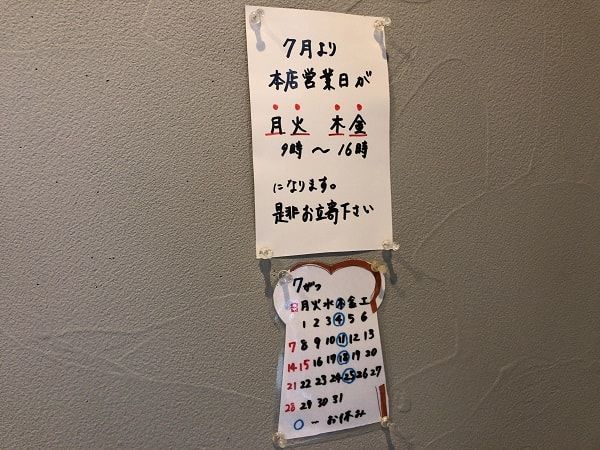 7月より
本店営業日が
月火 木金
9時〜16時
になります。
是非お立寄下さい
7がつ
日月火水木金土
1 2 3 4 5 6
7 8 9 10 11 12 13
14 15 16 17 18 19 20
21 22 23 24 25 26 27
28 29 30 31
○ 〜 お休み